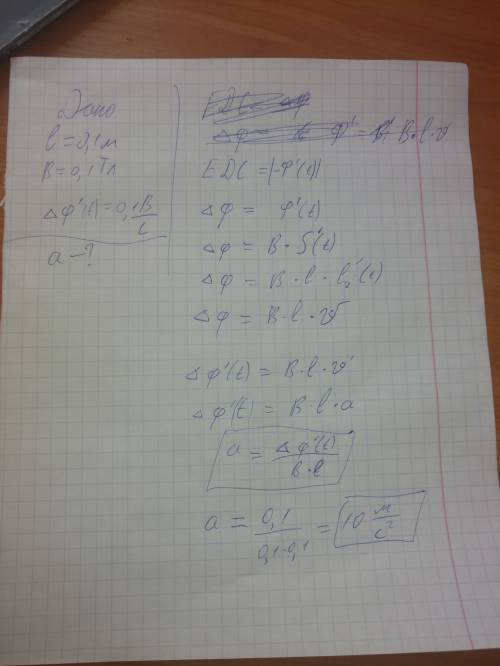 Дано
l = 0,1 м
B = 0,1 Тл
Δφ'(t) = 0,1 В/с
a - ?
EDC = |-Φ'(t)|
Δφ = φ'(t)
Δφ = B • S'(t)
Δφ = B • l • l₂'(t)
Δφ = B • l • v
Δφ'(t) = B • l • v'
Δφ'(t) = B • l • a
a = Δφ'(t) / B • l
a = 0,1 / 0,1 • 0,1 = 10 м/с²